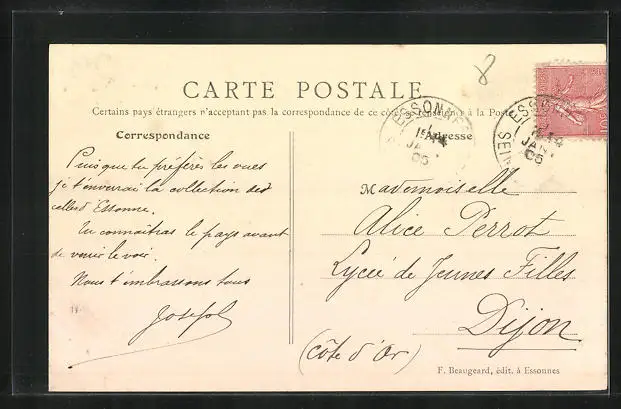 8
CARTE POSTALE
Certains pays étrangers n'acceptant pas la correspondance de ce côté, se renseigner à la Poste
Correspondance
Adresse
Puisque tu préfères les vues
je t'enverrai la collection des
celles d'Essonne.
Tu connaîtras le pays avant
de venir le voir.
Nous t'embrassons tous
Mademoiselle
Alice Perrot
Lycée de Jeunes Filles
Dijon
(Côte d'Or)
ESSONNES
JANV
05
ESSONNES
JANV
05
SEINE
F. Beaugeard, édit. à Essonnes